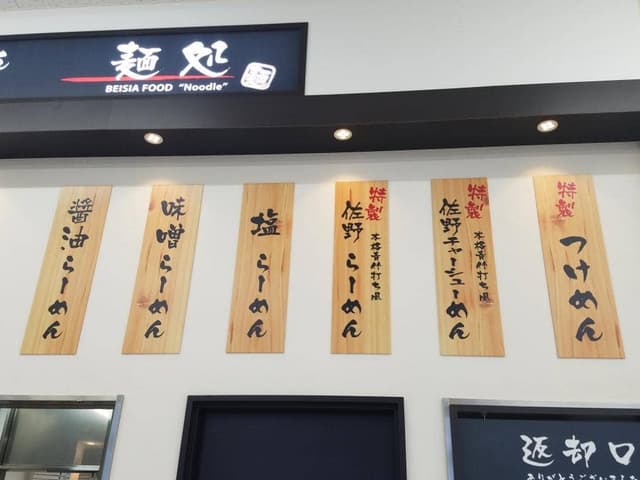 麺処
BEISIA FOOD "Noodle"
麺
特製
つけめん
特製
佐野チャーシューめん
本格青竹打ち風
特製
佐野らーめん
本格青竹打ち風
塩らーめん
味噌らーめん
醤油らーめん
返却口
ありがとうございました